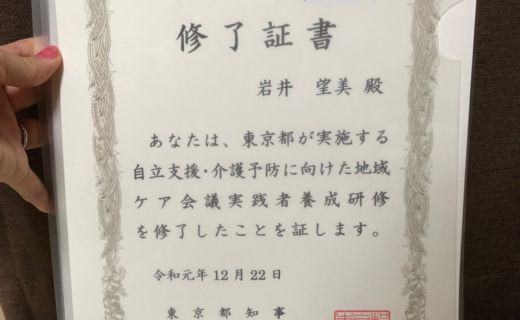 修了証書
岩井 望美 殿
あなたは、東京都が実施する
自立支援・介護予防に向けた地域
ケア会議実践者養成研修
を修了したことを証します。
令和元年12月22日
東京都知事